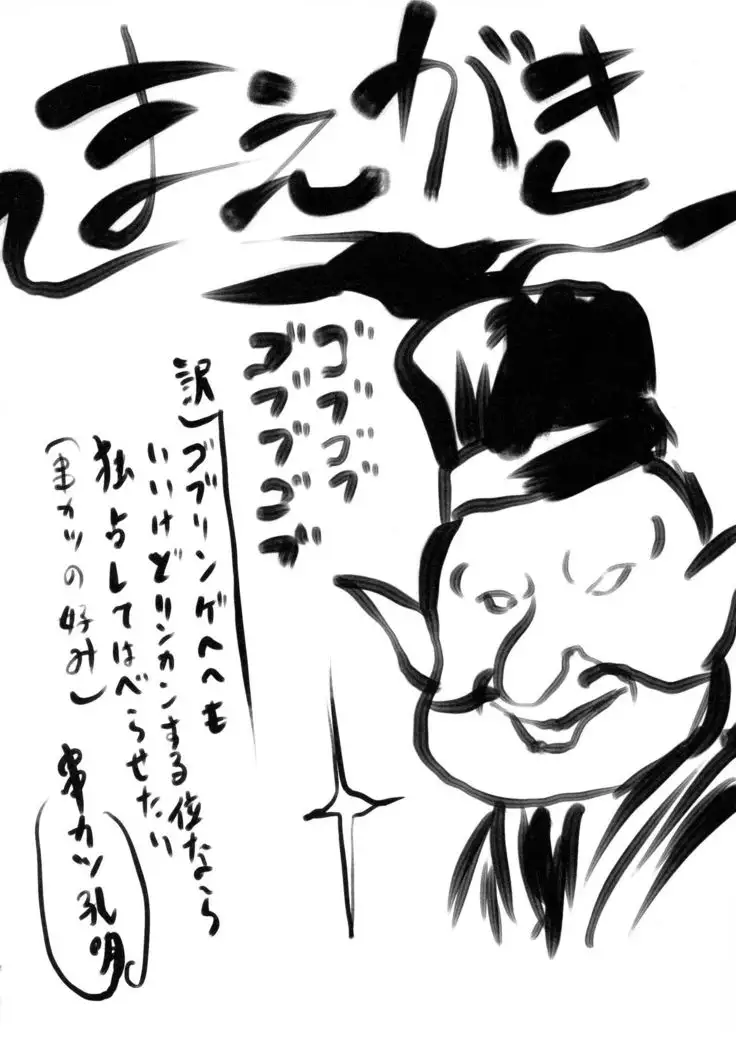 まえがき
ゴブゴブ
ゴブブゴブ
訳)ゴブリンゲヘヘも
いいけどリンカンする位なら
独占してはべらせたい
(串カツの好み)
串カツ孔明